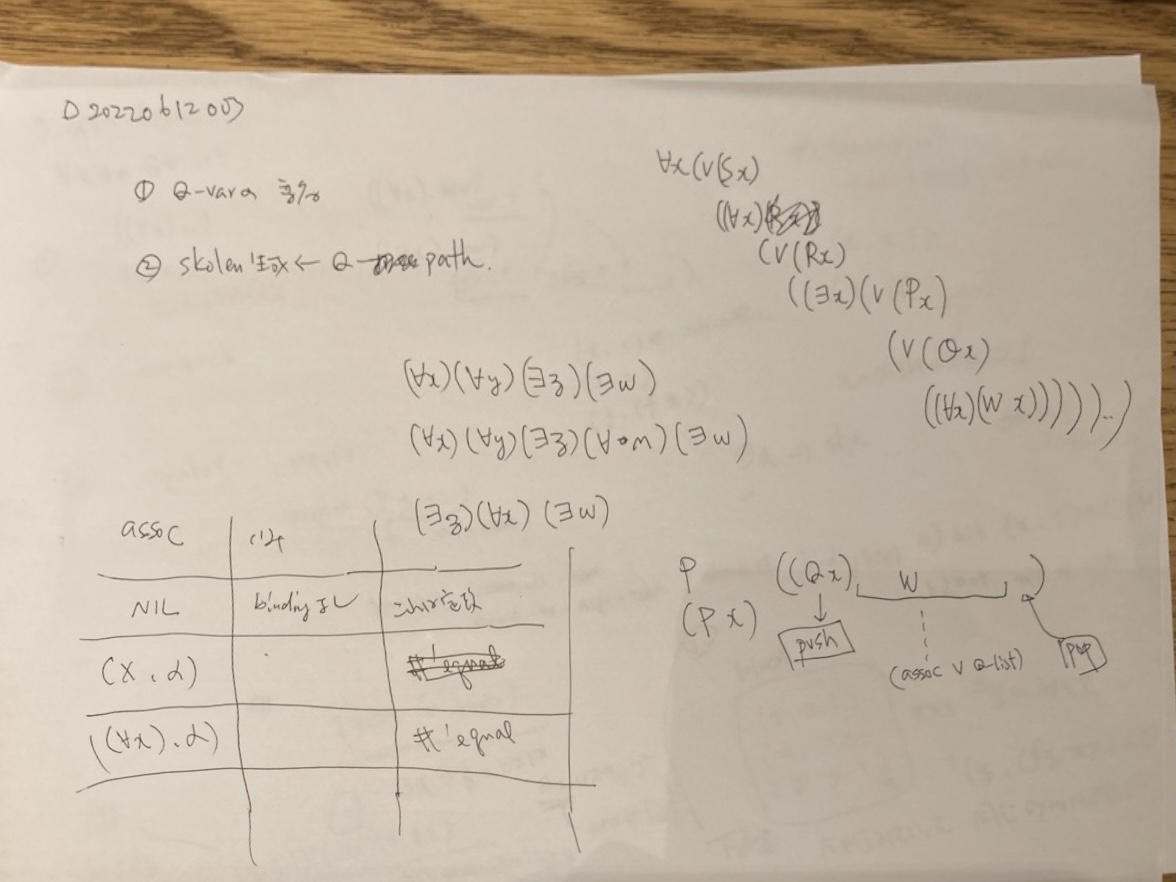 D20220612003
① Q-varの
② skolem ← Q- path.
∀x(∨(Sx)
((∀x)
(∨(Rx)
((∃x)(∨(Px)
(∨(Qx)
((∀x)(W x))))))..)
(∀x)(∀y)(∃z)(∃w)
(∀x)(∀y)(∃z)(∀om)(∃w)
(∃z)(∀x)(∃w)
assoc
NIL bindingなし
(x . α) #'equal
((∀x) . α) #'equal
P ((Qx) W )
(P x)
push
(assoc v Q-list)
pop